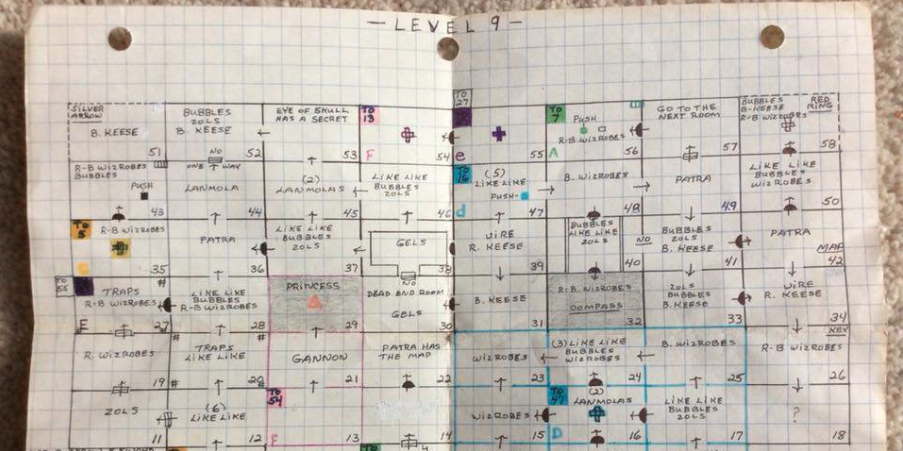 - LEVEL 9 -
SILVER
ARROW
B. KEESE
51
BUBBLES
ZOLS
B. KEESE
52
EYE OF SKULL
HAS A SECRET
53
TO
13
F
54
TO
27
e
55
TO
7
PUSH
R-B WIZROBES
A
56
GO TO THE
NEXT ROOM
57
BUBBLES
B-KEESE
R-B WIZROBES
RED
RING
58
R-B WIZROBES
BUBBLES
PUSH
43
NO
ONE WAY
LANMOLA
44
(2)
LANMOLAS
45
LIKE LIKE
BUBBLES
ZOLS
46
TO
16
(5)
LIKE LIKE
PUSH-
d
47
B. WIZROBES
48
PATRA
49
LIKE LIKE
BUBBLES
WIZROBES
50
TO
5
R-B WIZROBES
35
PATRA
36
LIKE LIKE
BUBBLES
ZOLS
37
GELS
38
WIRE
R. KEESE
39
BUBBLES
LIKE LIKE
ZOLS
40
NO
BUBBLES
ZOLS
B. KEESE
41
PATRA
MAP
42
TO
55
TRAPS
R-B WIZROBES
E
27
#
LIKE LIKE
BUBBLES
R-B WIZROBES
28
PRINCESS
29
NO
DEAD END ROOM
GELS
30
B. KEESE
31
R-B WIZROBES
COMPASS
32
ZOLS
BUBBLES
B. KEESE
33
WIRE
R. KEESE
34
R. WIZROBES
19
#
TRAPS
LIKE LIKE
20
#
GANNON
21
PATRA HAS
THE MAP
22
WIZROBES
23
(3) LIKE LIKE
BUBBLES
WIZROBES
24
B. WIZROBES
25
KEY
R-B WIZROBES
26
ZOLS
11
(6)
LIKE LIKE
12
TO
54
F
13
14
WIZROBES
15
TO
47
(2)
LANMOLAS
D
16
LIKE LIKE
BUBBLES
ZOLS
17
?
18